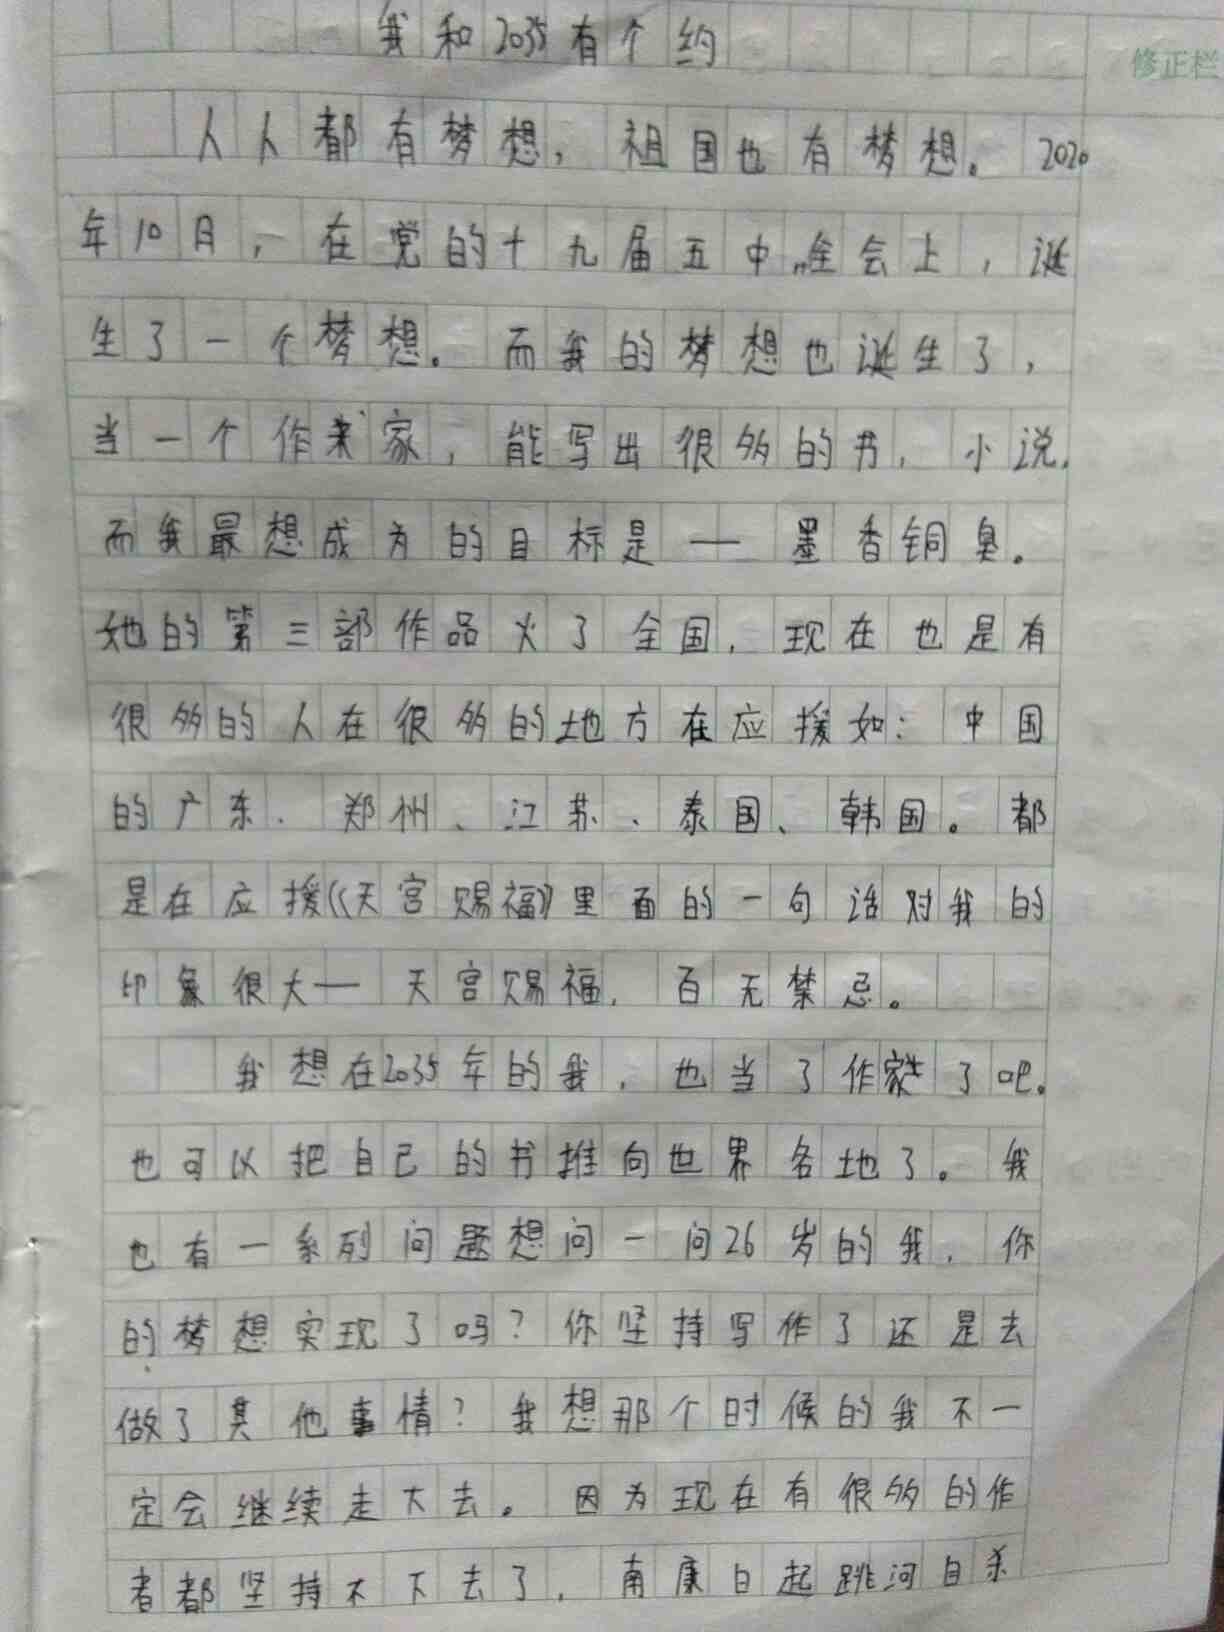 我和2035有个约
修正栏
人人都有梦想，祖国也有梦想。2020
年10月，在党的十九届五中全会上，诞
生了一个梦想。而我的梦想也诞生了，
当一个作家，能写出很多的书，小说，
而我最想成为的目标是——墨香铜臭。
她的第三部作品火了全国，现在也是有
很多的人在很多的地方在应援如：中国
的广东、郑州、江苏、泰国、韩国。都
是在应援《天宫赐福》里面的一句话对我的
印象很大——天宫赐福，百无禁忌。
我想在2035年的我，也当了作家了吧。
也可以把自己的书推向世界各地了。我
也有一系列问题想问一问26岁的我，你
的梦想实现了吗？你坚持写作了还是去
做了其他事情？我想那个时候的我不一
定会继续走下去。因为现在有很多的作
者都坚持不下去了，南康白起跳河自杀